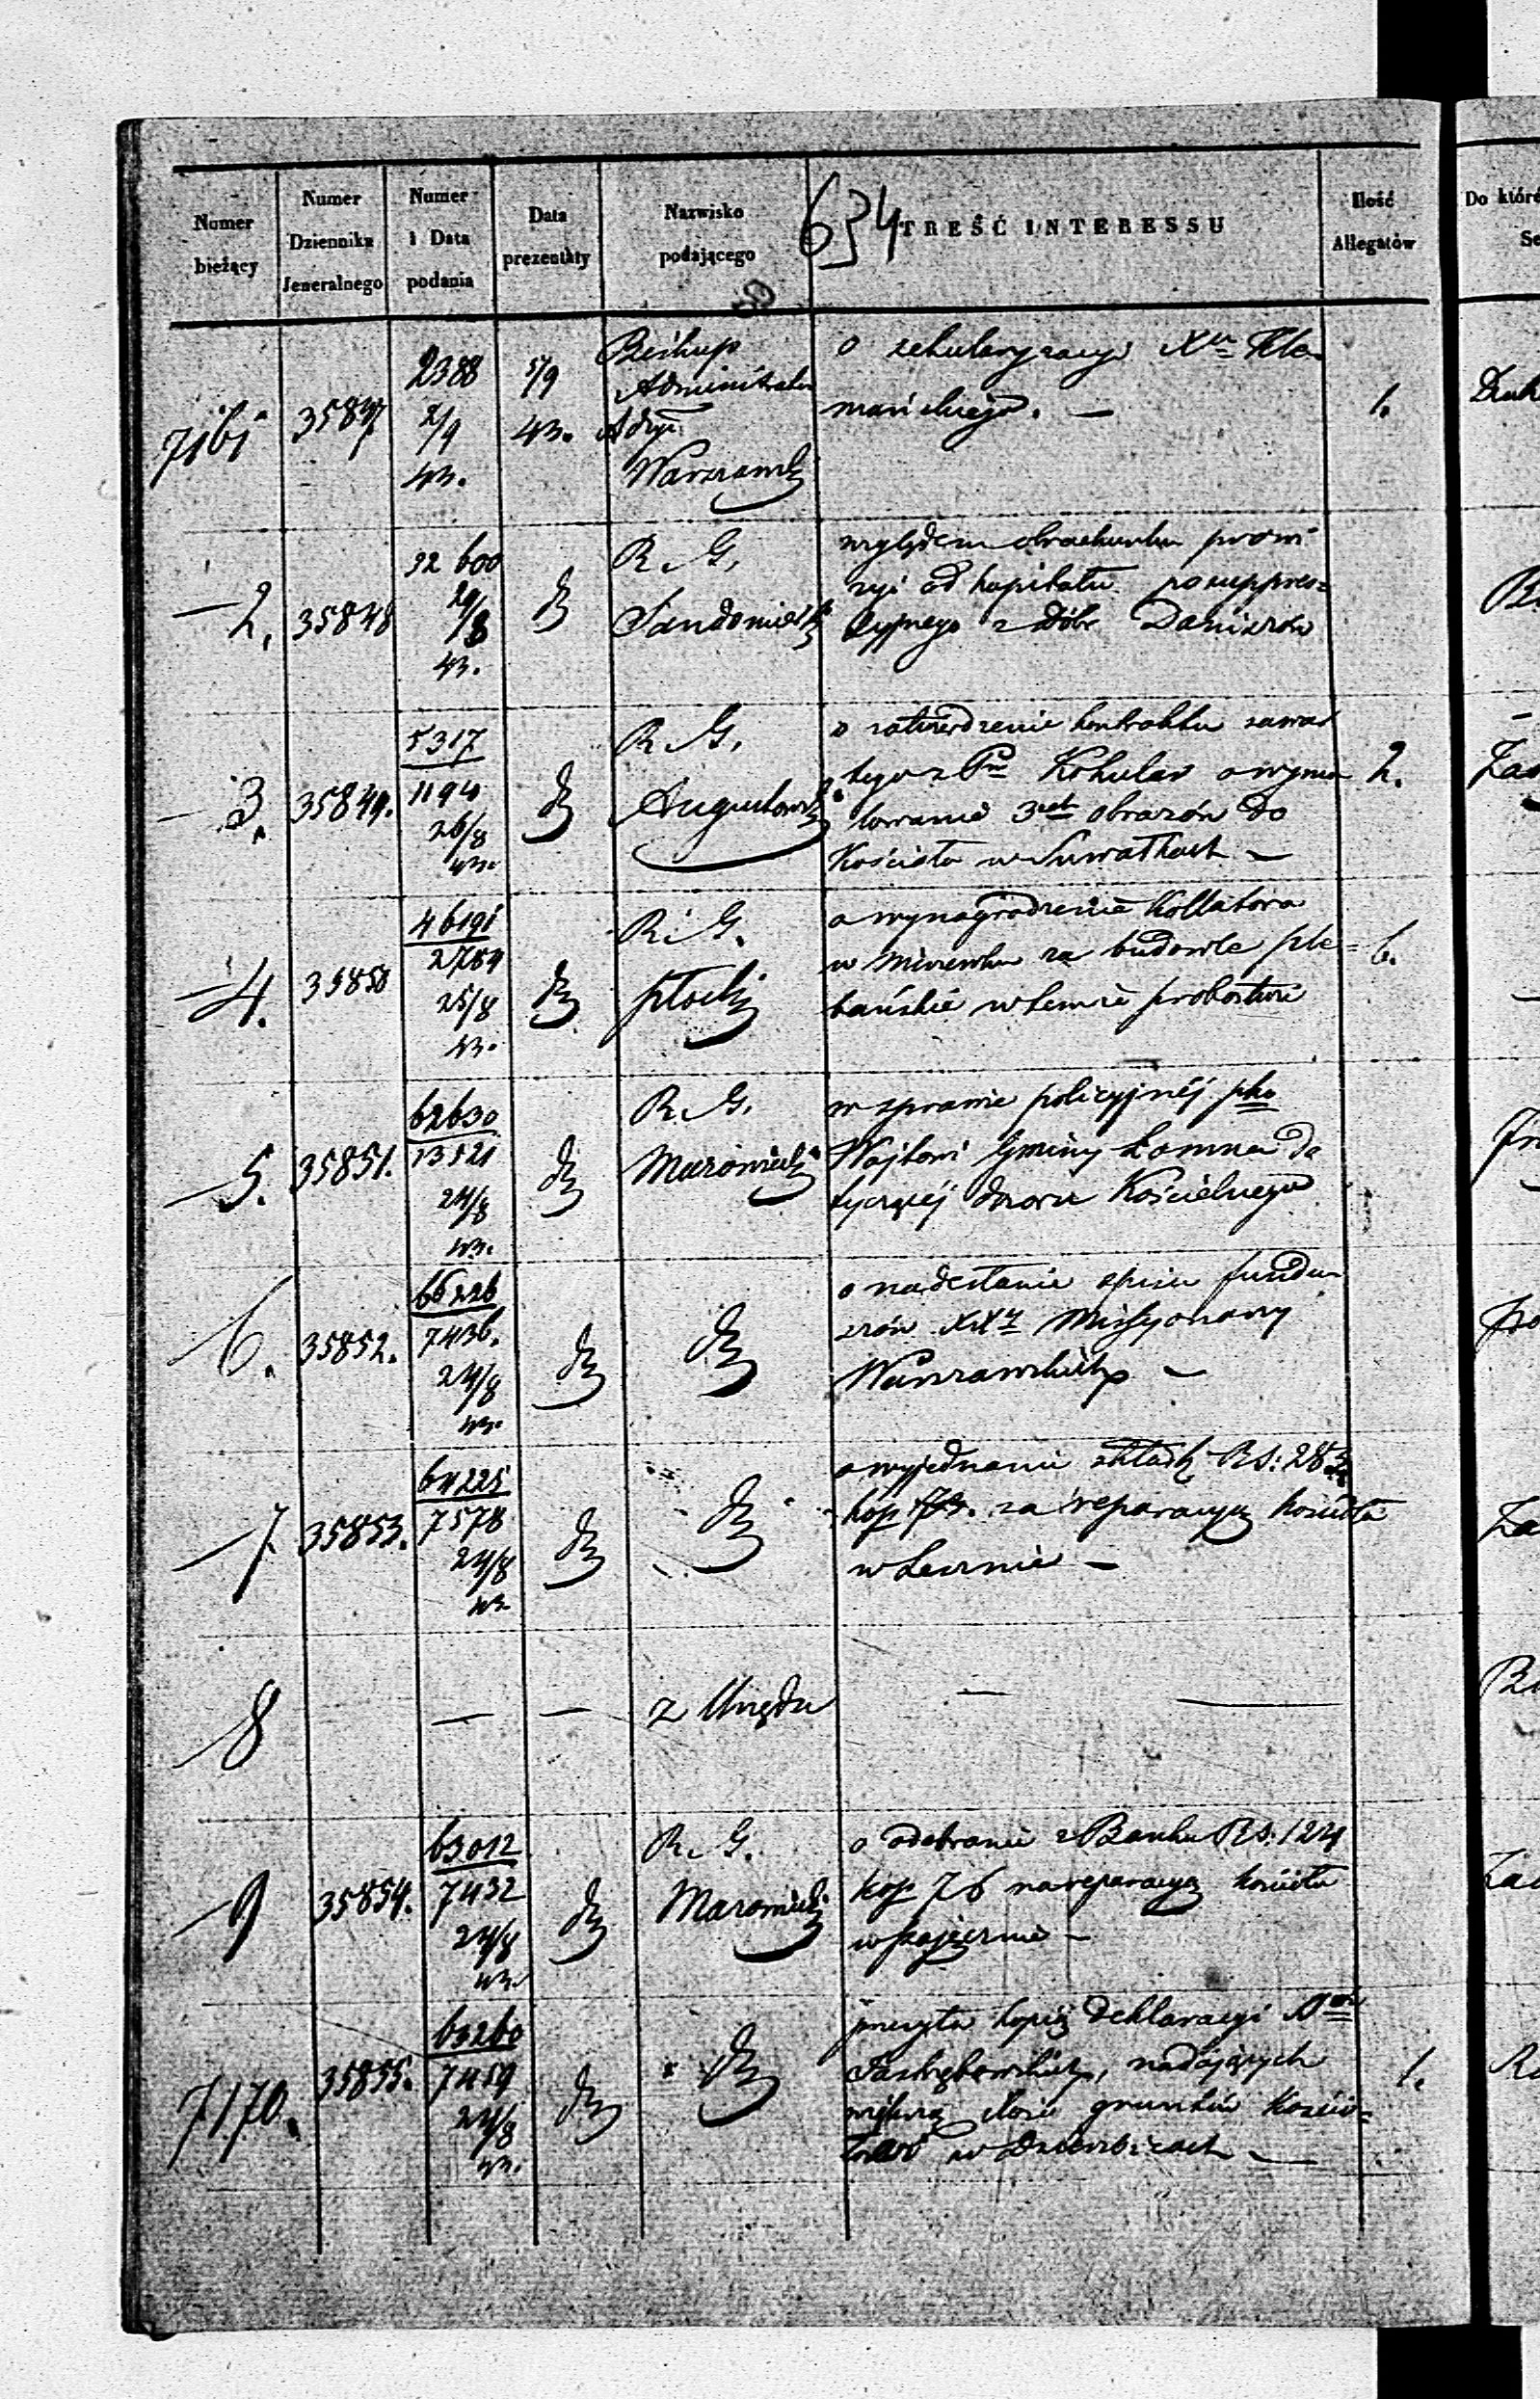 634
Numer bieżący
Numer Dziennika Jeneralnego
Numer i Data podania
Data prezentaty
Nazwisko podającego
TREŚĆ INTERESSU
Ilość Allegatów
Do które
Se
7161 35847 2388 2/9 43. 5/9 43. Biskup Administrator Warszawski
o sekularyzacyi Xa
1.
2. 35848 32600 29/8 43. R. G. Sandomierski
względem obrachunku prowi
zyi od kapitału posuppres=
syjnego z dóbr Daniszów
3. 35849. 5317 1194 26/8 43. R. G. Augustowski
o zatwierdzenie kontraktu zawar
tego z Pm Kokular o wyma
lowanie 3ch obrazów do
Kościoła w Suwałkach —
2.
4. 35850 46191 2789 25/8 43. R. G. Płocki
o wynagrodzenie Kollatora
w za budowle ple=
bańskie w temże probostwie
6.
5. 35851. 62630 13521 24/8 43. R. G. Mazowiecki
w sprawie policyjnéj pko
Wójtowi Gminy Łomna do
tyczącéj dozoru Kościelnego
6. 35852. 66226 7436. 24/8 43.
o nadesłanie spisu fundu
szów XXy Missyonarzy
Warszawskich —
7. 35853. 64225 7578 24/8 43.
o wyjednanie składki RS: 283
kop za reparacyę kościoła
w —
8 — — z Urzędu — —
9 35854. 63012 7432 24/8 43. R. G. Mazowiecki
o odebranie z Banku RS: 124
kop 76 na reparacyę kościoła
w Pajęcznie —
7170. 35855. 60260 7459 24/8 43.
przesyła kopię deklaracyi
Jastrzębowskich, nadających
większą ilość gruntów Kościo=
łowi w Dzierzbicach —
1.